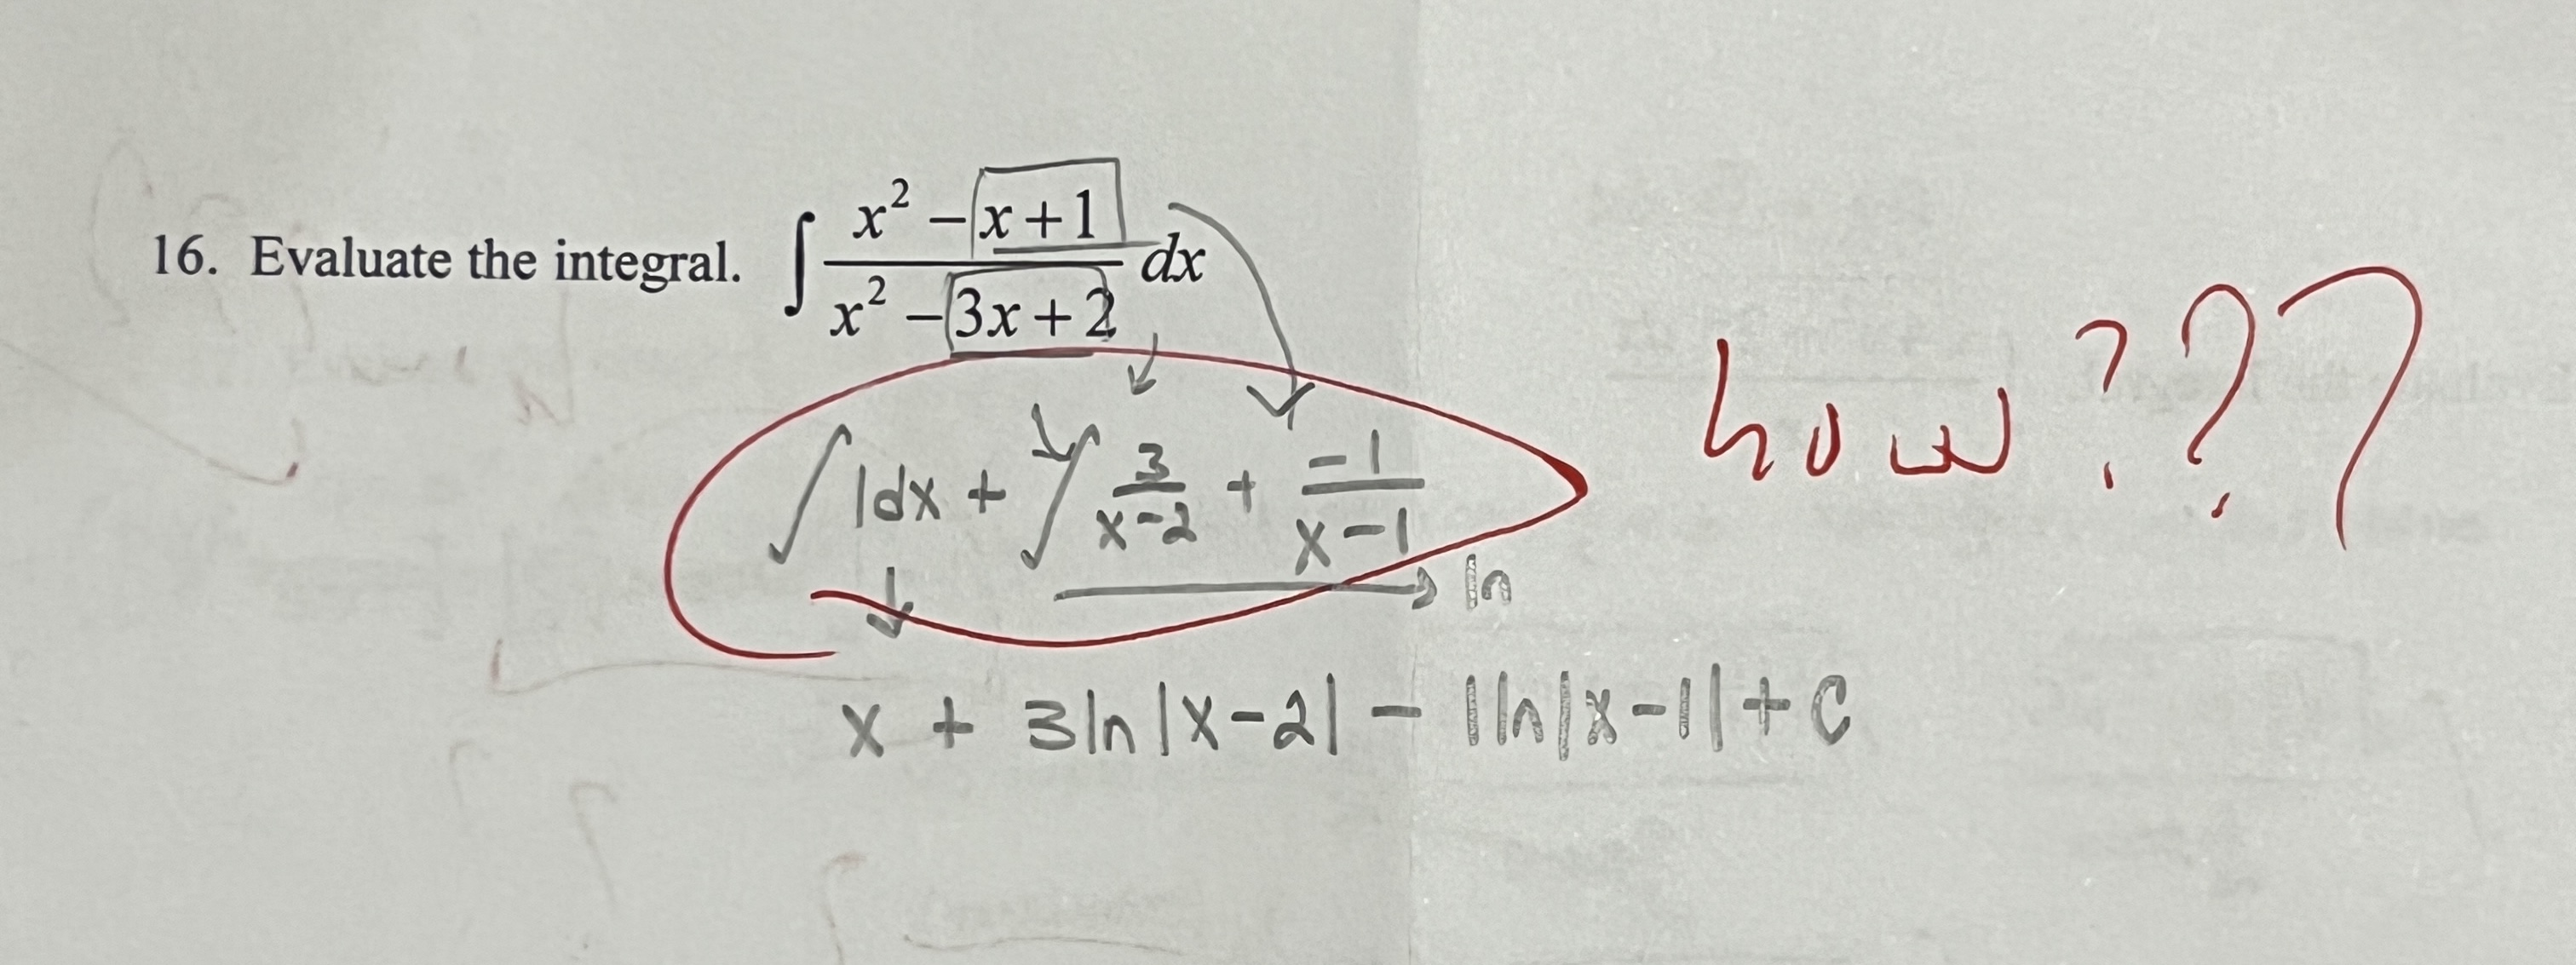 16. Evaluate the integral. ∫ (x² − x + 1)/(x² − 3x + 2) dx
how???
∫ 1dx + ∫ 3/(x-2) + -1/(x-1)
→ ln
x + 3ln|x-2| - 1ln|x-1| + C